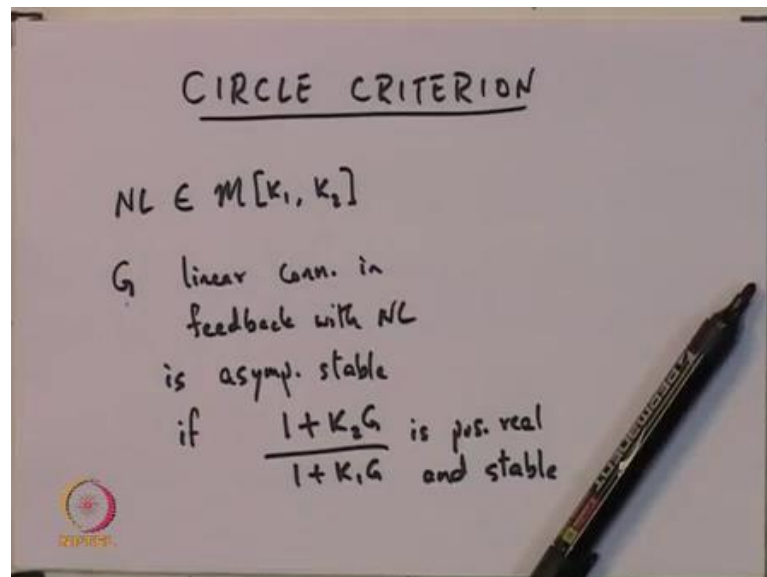 CIRCLE CRITERION
NL ∈ M[K₁, K₂]
G linear conn. in
feedback with NL
is asymp. stable
if (1 + K₂G)/(1 + K₁G) is pos. real
and stable
NPTEL